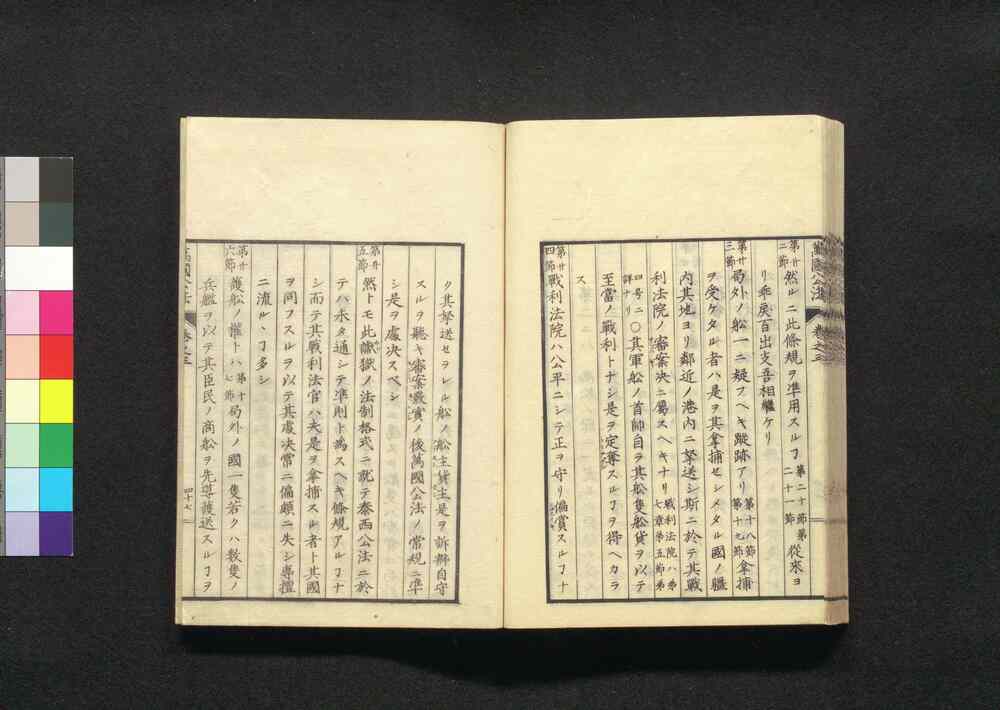 萬國公法 卷之三
第廿二節 然ルニ此條規ヲ準用スルヿ 第二十節第二十一節 從來ヨ
リ乖戻百出支吾相繼ケリ
第廿三節 局外ノ船一ニ疑フヘキ蹤跡アリ 第十八節第十九節 拿捕
ヲ受ケタル者ハ是ヲ其拿捕セシメタル國ノ艦
内其地ヨリ鄰近ノ港内ニ拏送シ斯ニ於テ其戰
利法院ノ審案決ニ屬スヘキナリ 戰利法院ハ第七章第五節第
四号ニ詳ナリ 〇其軍船ノ首師自ラ其舩隻舩貨ヲ以テ
至當ノ戰利トナシ是ヲ定奪スルヿヲ得ヘカラ
ス
第廿四節 戰利法院ハ公平ニシテ正ヲ守リ偏賞スルヿナ
ク其拏送セラレル船ノ船主貨主是ヲ訴辯自守
スルヲ聽キ審案覈實ノ後萬國公法ノ常規ニ準
シ是ヲ處決スベシ
第廿五節 然トモ此讞獄ノ法制格式ニ就テ泰西公法ニ於
テハ未タ通シテ準則ト為スヘキ條規アルヿナ
シ而テ其戰利法官ハ夫是ヲ拿捕スル者ト其國
ヲ同フスルヲ以テ其處決常ニ偏頗ニ失シ專擅
ニ流ルヽヿ多シ
第廿六節 護船ノ權トハ 第十七節 局外ノ國一隻若クハ數隻ノ
兵艦ヲ以テ其臣民ノ商船ヲ先導護送スルヿヲ
卷之三
四十七